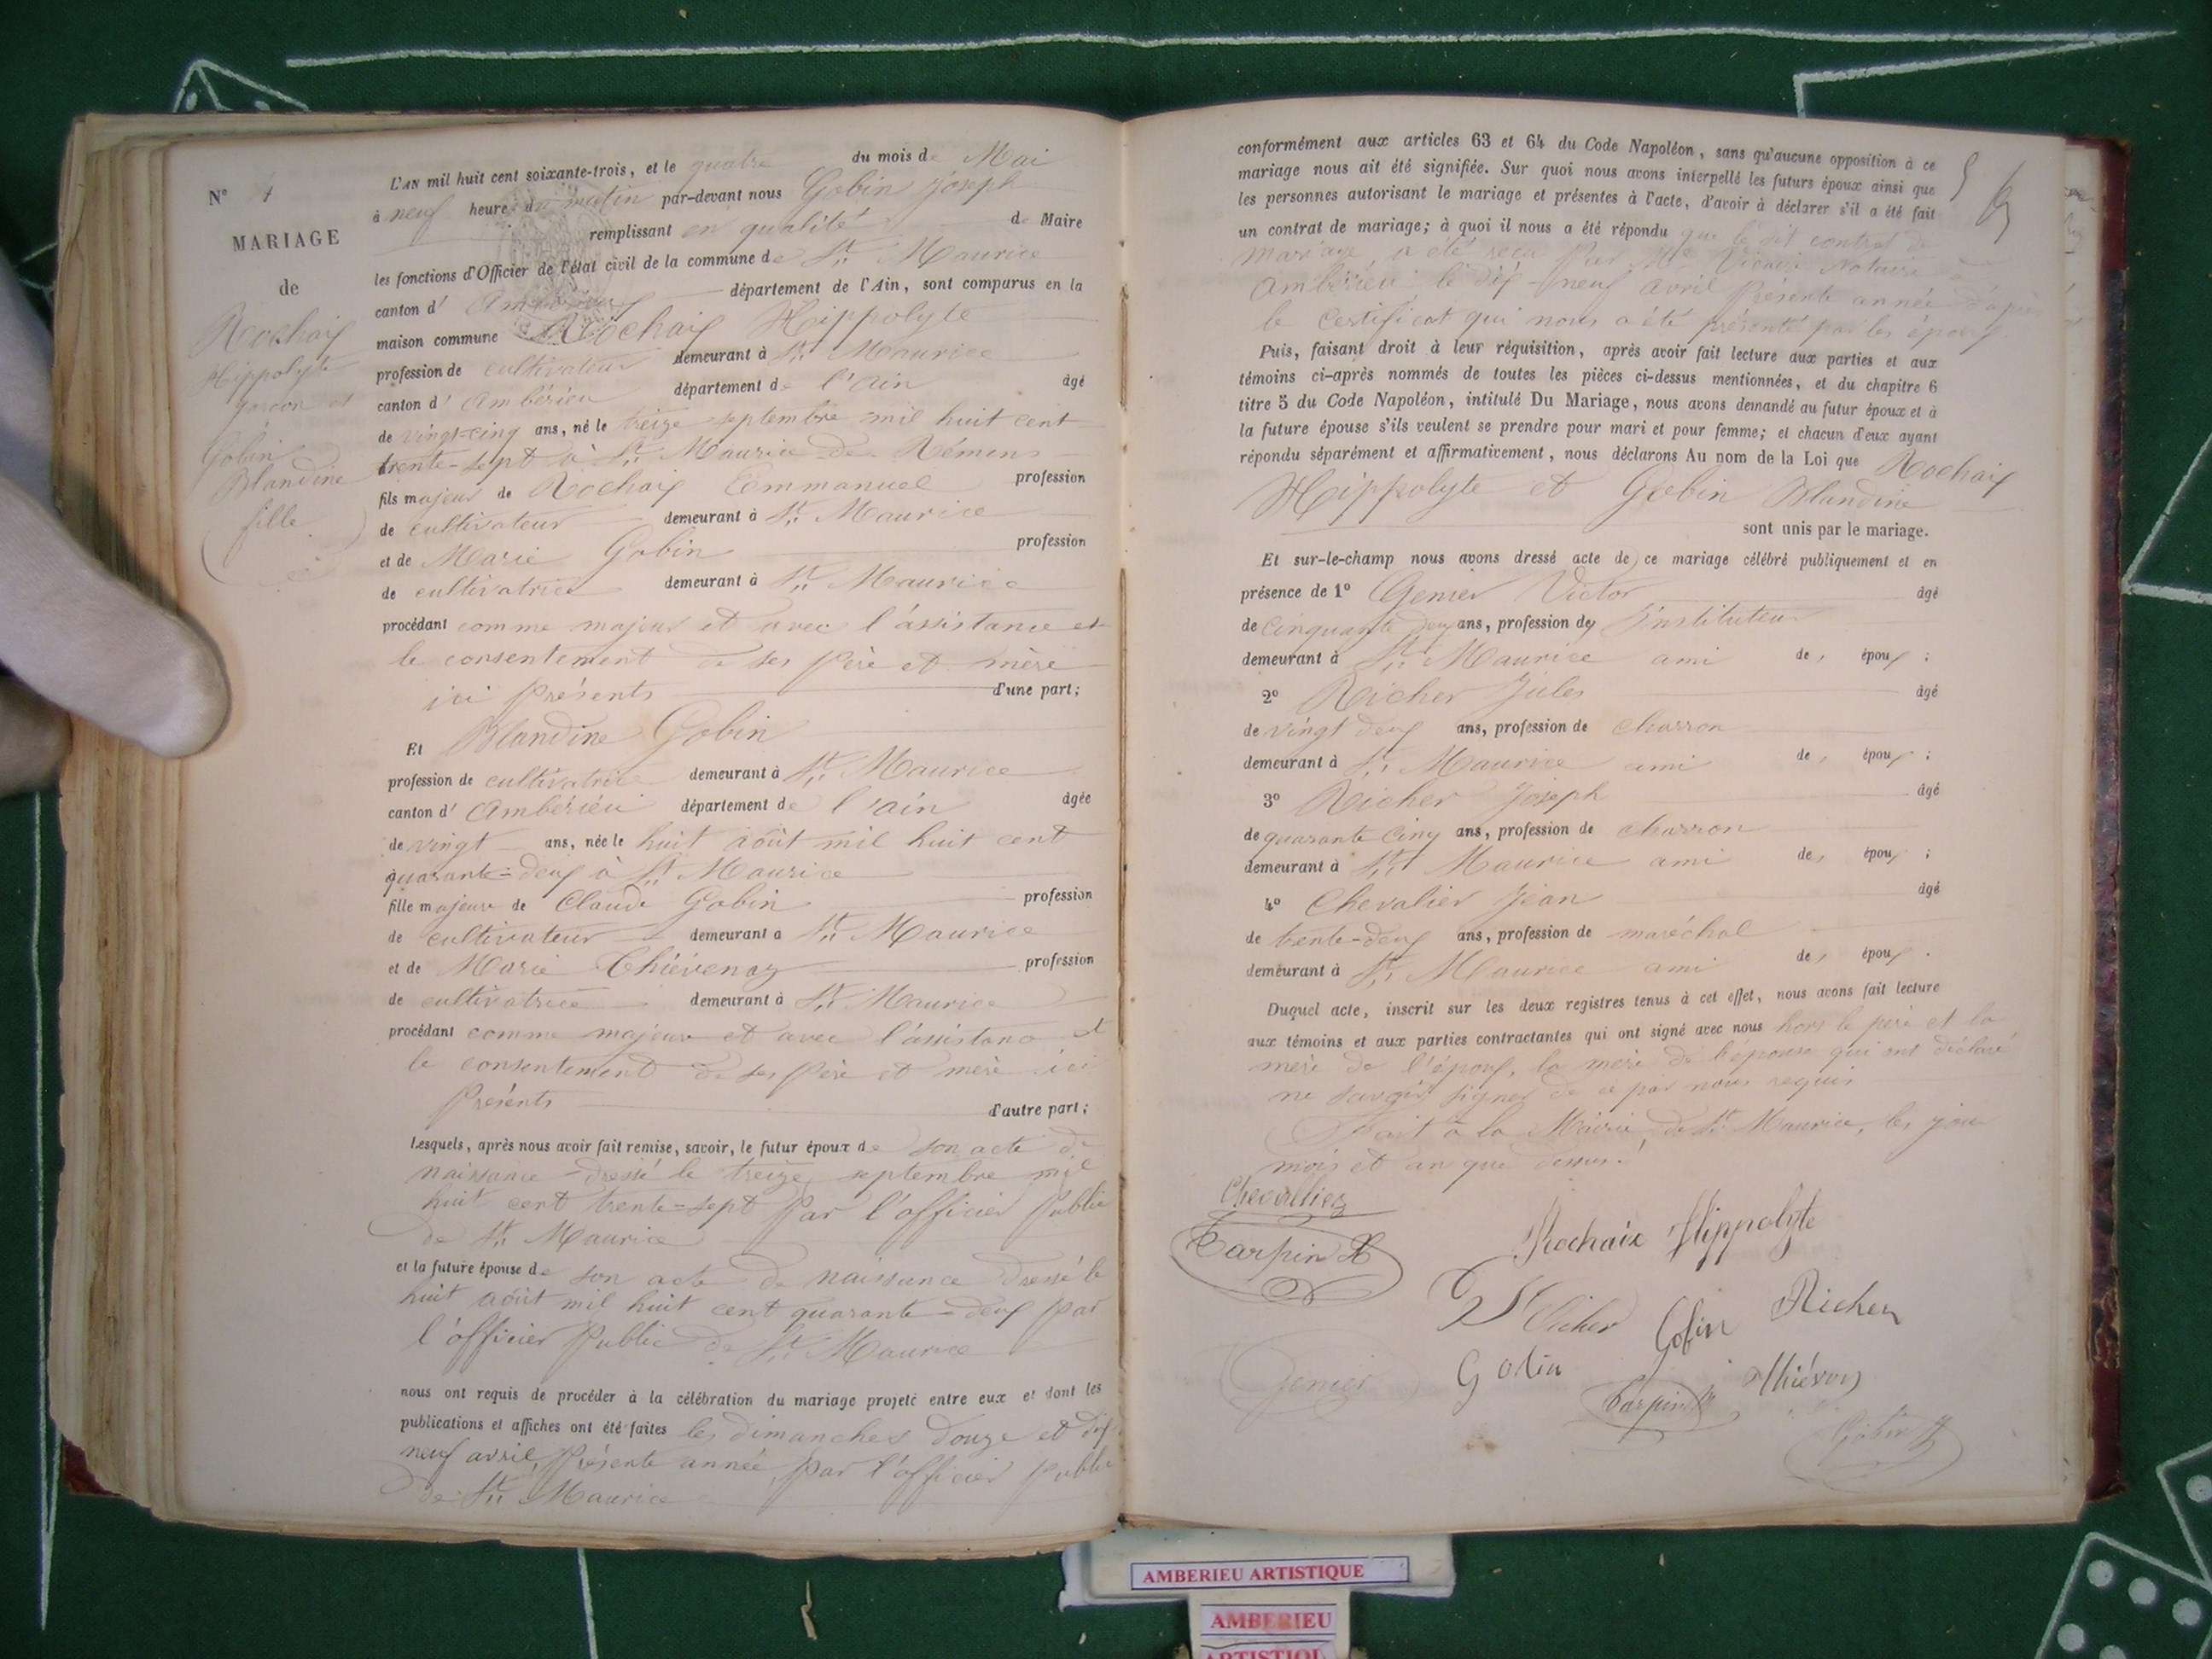 N° 4
MARIAGE
de
Rochaix
Hippolyte
garçon et
Gobin
Blandine
fille
L'AN mil huit cent soixante-trois, et le quatre du mois de Mai
à neuf heure du matin par-devant nous Gobin Joseph
remplissant en qualité de Maire
les fonctions d'Officier de l'état civil de la commune de St Maurice
canton d' Ambérieu département de l'Ain, sont comparus en la
maison commune Rochaix Hippolyte
profession de cultivateur demeurant à St Maurice
canton d' Ambérieu département de l'ain âgé
de vingt-cinq ans, né le treize septembre mil huit cent
trente-sept à St Maurice de Rémens
fils majeur de Rochaix Emmanuel profession
de cultivateur demeurant à St Maurice
et de Marie Gobin profession
de cultivatrice demeurant à St Maurice
procédant comme majeur et avec l'assistance et
le consentement de ses père et mère
ici Présents d'une part;
Et Blandine Gobin
profession de cultivatrice demeurant à St Maurice
canton d' Ambérieu département de l'ain âgée
de vingt ans, née le huit août mil huit cent
quarante=deux à St Maurice
fille majeure de Claude Gobin profession
de cultivateur demeurant à St Maurice
et de Marie Thiévenaz profession
de cultivatrice demeurant à St Maurice
procédant comme majeure et avec l'assistance et
le consentement de ses Père et mère ici
Présents d'autre part;
Lesquels, après nous avoir fait remise, savoir, le futur époux de son acte de
naissance dressé le treize septembre mil
huit cent trente=sept Par l'officier Public
de St Maurice
et la future épouse de son acte de naissance dressé le
huit août mil huit cent quarante=deux par
l'officier Public de St Maurice
nous ont requis de procéder à la célébration du mariage projeté entre eux et dont les
publications et affiches ont été faites les dimanches douze et dix
neuf avril, Présente année, Par l'officier public
de St Maurice
conformément aux articles 63 et 64 du Code Napoléon, sans qu'aucune opposition à ce
mariage nous ait été signifiée. Sur quoi nous avons interpellé les futurs époux ainsi que
les personnes autorisant le mariage et présentes à l'acte, d'avoir à déclarer s'il a été fait
un contrat de mariage; à quoi il nous a été répondu que le dit contrat de
mariage, a été reçu Par Me Notaire à
Ambérieu le dix-neuf avril Présente année d'après
le Certificat qui nous a été présenté par les époux
Puis, faisant droit à leur réquisition, après avoir fait lecture aux parties et aux
témoins ci-après nommés de toutes les pièces ci-dessus mentionnées, et du chapitre 6
titre 5 du Code Napoléon, intitulé Du Mariage, nous avons demandé au futur époux et à
la future épouse s'ils veulent se prendre pour mari et pour femme; et chacun d'eux ayant
répondu séparément et affirmativement, nous déclarons Au nom de la Loi que Rochaix
Hippolyte et Gobin Blandine
sont unis par le mariage.
Et sur-le-champ nous avons dressé acte de ce mariage célébré publiquement et en
présence de 1° Genier Victor âgé
de Cinquante deux ans, profession de Instituteur
demeurant à St Maurice ami des époux;
2° Richer Jules âgé
de vingt deux ans, profession de charron
demeurant à St Maurice ami des époux;
3° Richer Joseph âgé
de quarante cinq ans, profession de charron
demeurant à St Maurice ami des époux;
4° Chevalier Jean âgé
de trente-deux ans, profession de maréchal
demeurant à St Maurice ami des époux.
Duquel acte, inscrit sur les deux registres tenus à cet effet, nous avons fait lecture
aux témoins et aux parties contractantes qui ont signé avec nous hors le père et la
mère de l'époux, la mère de l'épouse qui ont déclaré
ne savoir signer de ce par nous requis
Fait à la Mairie, de St Maurice, les jour
mois et an que dessus.
Chevallier
Tarpin
Rochaix Hippolyte
Richer
Gobin
Richer
Genier
Gobin
Tarpin
Gobin
AMBERIEU ARTISTIQUE
AMBERIEU